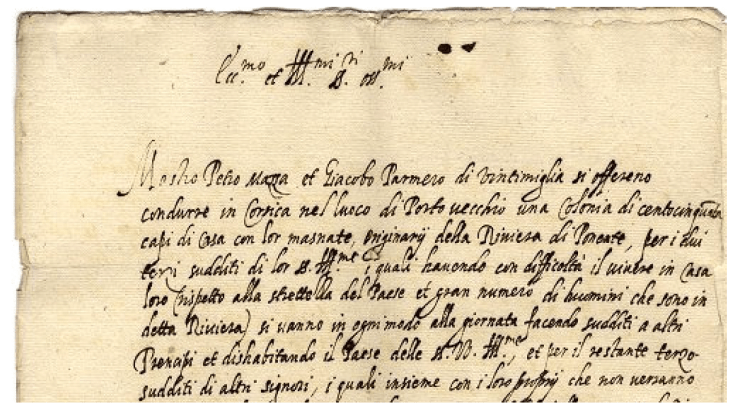 Ecc.mo et Ill.mi S.ri oss.mi
Mastro Petro Mazza et Giacobo Parmero di Vintimiglia si offereno
condurre in Corsica nel luoco di Porto vecchio una Colonia di centocinquanta
capi di Casa con lor masnate, originarij della Riviera di Ponente, per i dui
terzi sudditi di lor S. Ill.me, i quali havendo con difficoltà il vivere in casa
loro (rispetto alla strettezza del Paese et gran numero di huomini che sono in
detta Riviera) si vanno in ogni modo alla giornata facendo sudditi a altri
Prencipi et dishabitando il Paese delle S. V. Ill.me, et per il restante terzo
sudditi di altri signori, i quali insieme con i loro proprij che non verranno